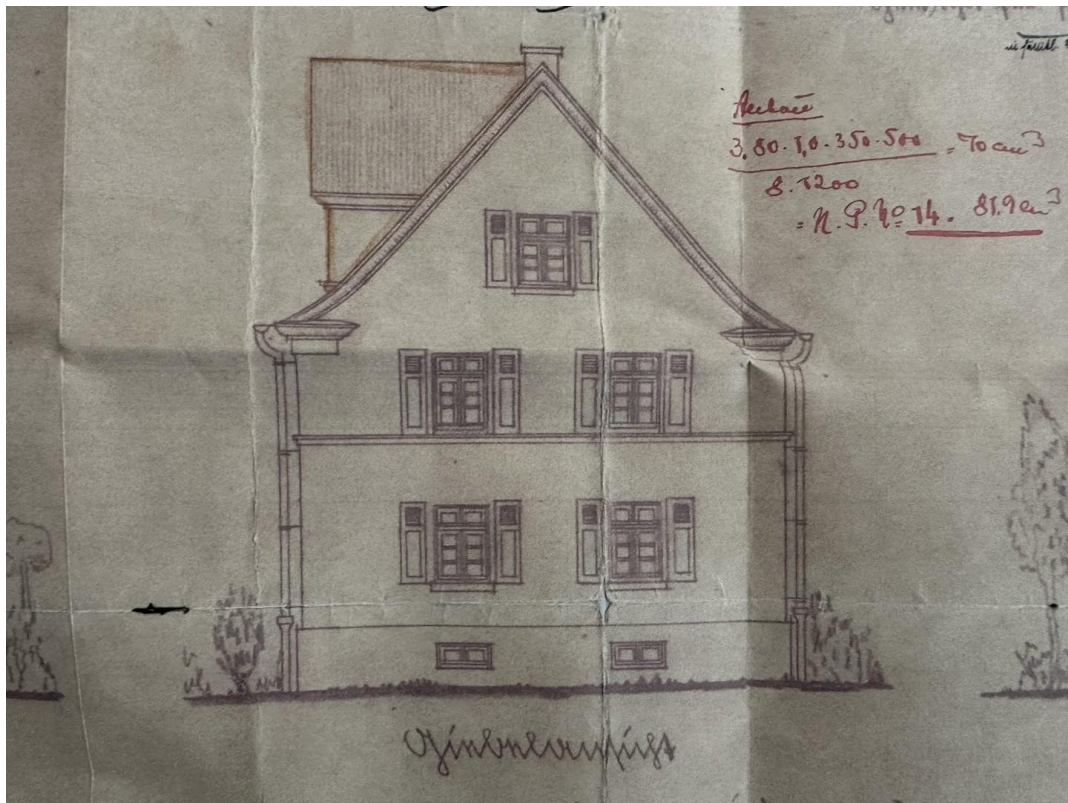 3,80 · 1,0 · 350 · 500 = 70 cm³
8 · 1200
= N. P. No 14 . 81.9 cm³
Giebelansicht